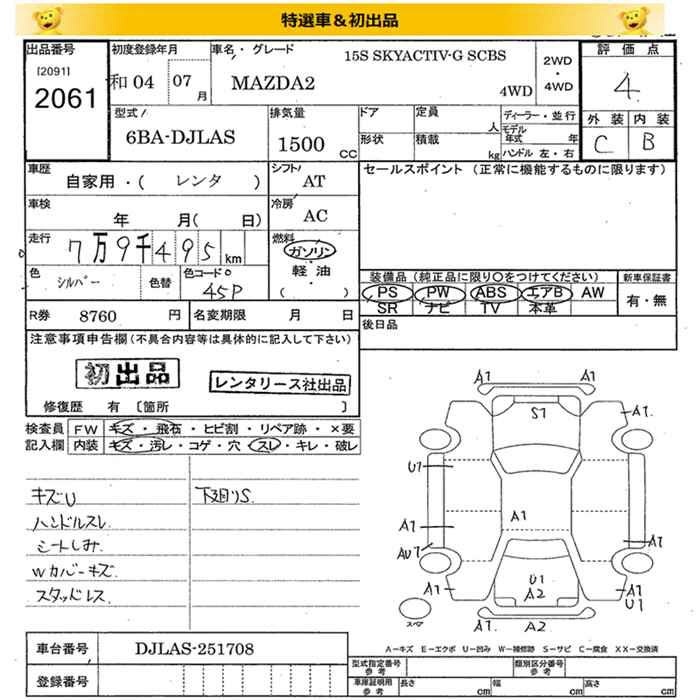 特選車＆初出品
出品番号
[2091]
2061
初度登録年月
和 04 07 月
車名・グレード
15S SKYACTIV-G SCBS
MAZDA2
4WD
2WD
・
4WD
評価点
4
外装 内装
C B
型式
6BA-DJLAS
排気量
1500 CC
ドア
形状
定員 人
積載 kg
ディーラー・並行
モデル年式 年
ハンドル 左・右
車歴
自家用・( レンタ )
シフト
AT
車検
年 月( 日)
冷房
AC
走行
7万9千495 km
燃料
ガソリン
軽油
( )
色
シルバー
色替
色コードNo
45P
セールスポイント (正常に機能するものに限ります)
装備品 (純正品に限り○をつけてください)
PS PW ABS エアB AW
SR ナビ TV 本革
新車保証書
有・無
R券 8760 円
名変期限 月 日
後日品
注意事項申告欄(不具合内容等は具体的に記入して下さい)
初出品
レンタリース社出品
修復歴 有 [箇所 ]
検査員 FW キズ・飛石・ヒビ割・リペア跡・×要
記入欄 内装 キズ・汚レ・コゲ・穴・スレ・キレ・破レ
キズU
ハンドルスレ
シートしみ
Wカバーキズ
スタッドレス
下廻りS.
A1 A1
A1 S1 A1.
U1
A1 A1 A1
AU1
A1 U1 A2 A1 U1
A1 A2 A1
スペア
A－キズ E－エクボ U－凹み W－補修跡 S－サビ C－腐食 XX－交換済
車台番号 DJLAS-251708
登録番号
型式指定番号 参考
類別区分番号 参考
車庫証明用 参考
長さ cm 幅 cm 高さ cm